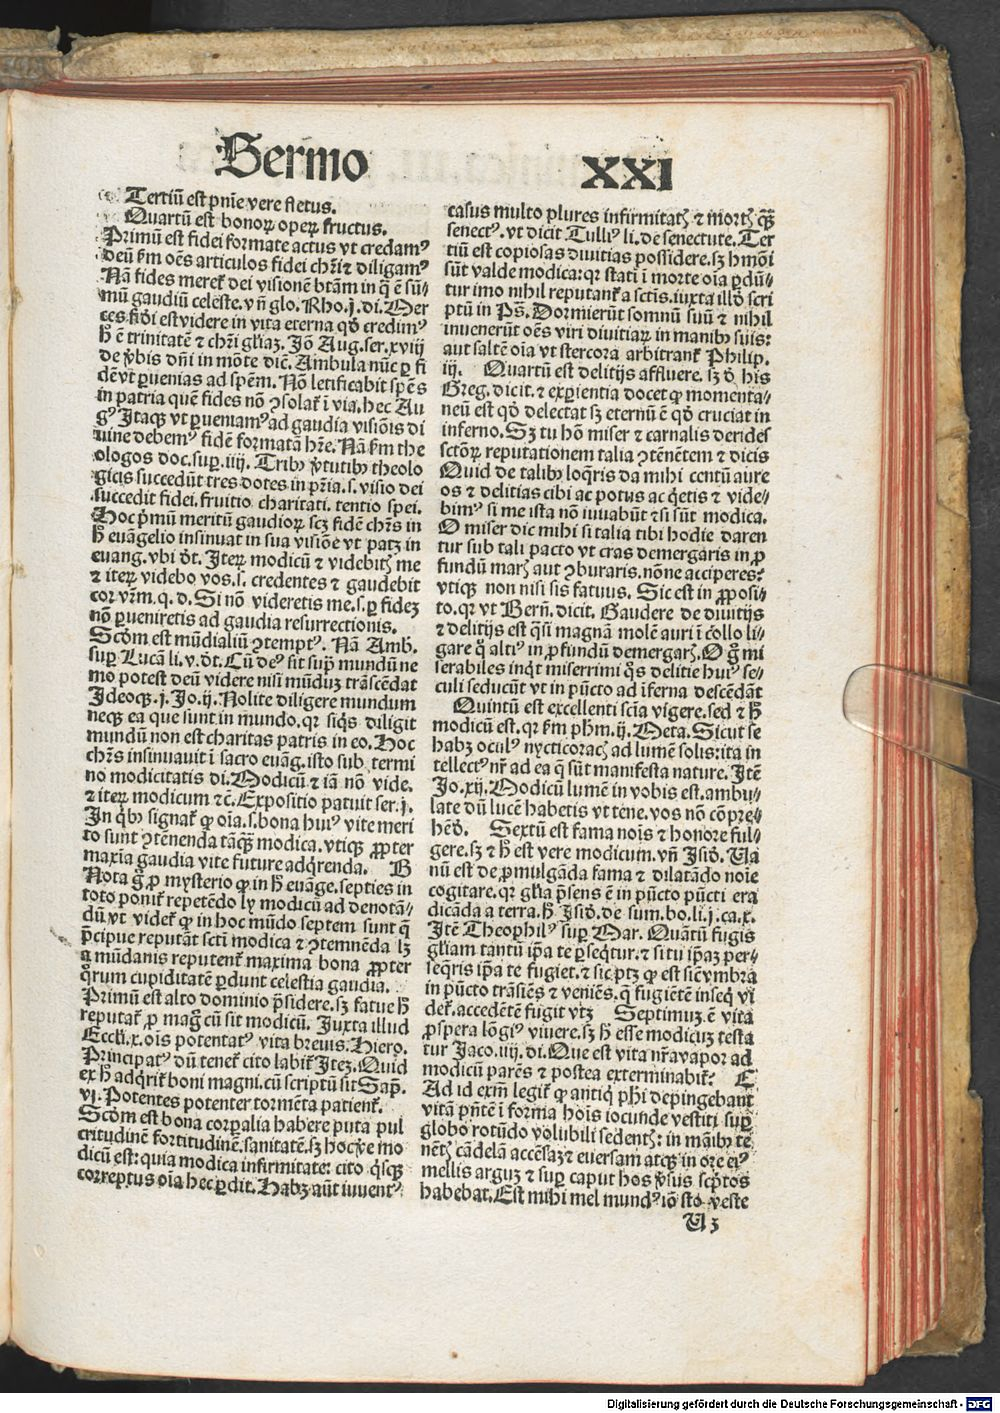 Sermo XXI
Tertiū est pnīe vere fletus.
Quartū est bonoꝝ operꝝ fructus.
Primū est fidei formate actus vt credamꝰ
deū ẜm oēs articulos fidei chrī ⁊ diligamꝰ
Nā fides meret᷑ dei visionē btām in q̄ ē sū-
mū gaudiū celeste. vn̄ glo. Rho. j. di. Mer
ces fidei est videre in vita eterna qđ credimꝰ
ħ ē trinitatē ⁊ chrī gl̄iaꝫ. Jō Aug. ser. xviij
de v̓bis dn̄i in mōte dic̄. Ambula nūc ꝑ fi
dē vt ꝑuenias ad spēm. Nō letificabit spēs
in patria quē fides nō ꝯsolat᷑ ī via. hec Au
gꝰ Jtaqꝫ vt ꝑueniamꝰ ad gaudia visiōis di
uine debemꝰ fidē formatā hr̄e. Nā ẜm the
ologos doc. suꝑ. iiij. Tribꝰ v̓tutibꝰ theolo
gicis succedūt tres dotes in pr̄ia. s. visio dei
succedit fidei. fruitio charitati. tentio spei.
Hoc pͥmū meritū gaudioꝝ scꝫ fidē chrs̄ in
ħ euāgelio insinuat in sua visiōe vt patꝫ in
euang. vbi đt. Jteꝝ modicū ⁊ videbitꝭ me
⁊ iteꝝ videbo vos. s. credentes ⁊ gaudebit
cor vr̄m. q. d. Si nō videretis me. s. ꝑ fideꝫ
nō ꝑueniretis ad gaudia resurrectionis.
Scđm est mūdialiū ꝯtemptꝰ. Nā Amb.
suꝑ Lucā li. v. đt. Cū deꝰ sit supͣ mundū ne
mo potest deū videre nisi mūduꝫ trāscēdat
Jdeoqꝫ. j. Jo. ij. Nolite diligere mundum
neqꝫ ea que sunt in mundo. qꝛ siqͥs diligit
mundū non est charitas patris in eo. Hoc
chrs̄ insinuauit ī sacro euāg. isto sub termi
no modicitatis di. Modicū ⁊ iā nō vide.
⁊ iteꝝ modicum ⁊c̄. Expositio patuit ser. j.
Jn qͥbꝰ signat᷑ ꝙ oīa. s. bona huiꝰ vite meri
to sunt ꝯtēnenda tāqͣꝫ modica. vtiqꝫ ꝓpter
maxīa gaudia vite future adqͥrenda. B
Nota gͦ ꝓ mysterio ꝙ in ħ euāge. septies in
toto ponit᷑ repetēdo ly modicū ad denotā-
dū. vt videt᷑ ꝙ in hoc mūdo septem sunt q̄
p̄cipue reputāt sctī modica ⁊ ꝯtemnēda lꝫ
a mūdanis reputent᷑ maxima bona ꝓpter
qͦrum cupiditatē ꝑdunt celestia gaudia.
Primū est alto dominio p̄sidere. sꝫ fatue ħ
reputat᷑ ꝓ magͦ cū sit modicū. Juxta illud
Eccli. x. oīs potentatꝰ vita breuis. Hiero.
Principatꝰ dū tenet᷑ cito labit᷑ Jteꝫ. Quid
ex ħ adqͥrit᷑ boni magni. cū scriptū sit Sap̄.
vj. Potentes potenter tormēta patient᷑.
Scđm est bona corꝑalia habere puta pul
critudinē fortitudinē. sanitatē. sꝫ hoc ve mo
dicū est: quia modica infirmitate: cito qͥsqꝫ
correptus oīa hec ꝑdit. Habꝫ aūt iuuentꝰ
casus multo plures infirmitatꝭ ⁊ mortꝭ qͣꝫ
senectꝰ. vt dicit Tulliꝰ li. de senectute. Ter
tiū est copiosas diuitias possidere. sꝫ hmōi
sūt valde modica: qꝛ stati ī morte oīa ꝑdū-
tur imo nihil reputant᷑ a sctīs. iuxta illđ scri
ptū in Ps̄. Dormierūt somnū suū ⁊ nihil
inuenerūt oēs viri diuitiaꝝ in manibꝰ suis:
aut saltē oīa vt stercora arbitrant᷑ Philip.
iij. Quartū est delitijs affluere. sꝫ đ his
Greg. dicit. ⁊ experientia docet ꝙ momenta-
neū est qđ delectat sꝫ eternū ē qđ cruciat in
inferno. Sꝫ tu hō miser ⁊ carnalis derides
sctōꝝ reputationem talia ꝯtēnētem ⁊ dicis
Quid de talibꝰ loqͥris da mihi centū aure
os ⁊ delitias cibi ac potus ac qͥetis ⁊ vide-
bimꝰ si me ista nō iuuabūt ⁊ si sūt modica.
O miser dic mihi si talia tibi hodie daren
tur sub tali pacto vt cras demergaris in ꝓ
fundū marꝭ aut ꝯburaris. nōne acciperes?
vtiqꝫ non nisi sis fatuus. Sic est in ꝓposi-
to. qꝛ vt Bern̄. dicit. Gaudere de diuitijs
⁊ delitijs est qͣsi magnā molē auri ī collo li-
gare qͦ altiꝰ in ꝓfundū demergarꝭ. O gͦ mi
serabiles inqͥt miserrimi qͦs delitie huiꝰ se-
culi seducūt vt in pūcto ad īferna descēdāt
Quintū est excellenti sciā vigere. sed ⁊ ħ
modicū est. qꝛ ẜm phm̄. ij. Meta. Sicut se
habꝫ oculꝰ nycticoracꝭ ad lumē solis: ita in
tellectꝰ nr̄ ad ea q̄ sūt manifesta nature. Jtē
Jo. xij. Modicū lumē in vobis est. ambu-
late dū lucē habetis vt tene. vos nō cōpre-
hēđ. Sextū est fama nōis ⁊ honore ful-
gere. sꝫ ⁊ ħ est vere modicum. vn̄ Jsiđ. Va
nū est de ꝓmulgāda fama ⁊ dilatādo noīe
cogitare. qꝛ gl̄ia p̄sens ē in pūcto pūcti era
dicāda a terra. ħ Jsiđ. de sum. bo. li. j. ca. x.
Jtē Theophilꝰ suꝑ Mar. Quātū fugis
gl̄iam tantū ip̄a te ꝑseqͥtur. ⁊ si tu ip̄aꝫ per-
seqͥris ip̄a te fugiet. ⁊ sic ptꝫ ꝙ est sic̄ vmbra
in pūcto trāsiēs ⁊ veniēs. q̄ fugiētē inseqͥ vi
det᷑. accedētē fugit vtꝫ Septimuꝫ ē vita
ꝓspera lōgiꝰ viuere. sꝫ ħ esse modicuꝫ testa
tur Jaco. iiij. di. Que est vita nr̄a vapor ad
modicū parēs ⁊ postea exterminabit᷑? C
Ad id exm̄ legit᷑ ꝙ antiqͥ phī depingebant
vitā p̄ntē ī forma hoīs iocunde vestiti suꝑ
globo rotūdo volubili sedentꝭ: in māibꝰ te
nētꝭ cādelā accēsaꝫ ⁊ euersam atqꝫ in ore eiꝰ
mellis arguꝫ ⁊ suꝑ caput hos v̓sus scp̄tos
habebat. Est mihi mel mundꝰ iō sto veste
V 3
Digitalisierung gefördert durch die Deutsche Forschungsgemeinschaft - DFG